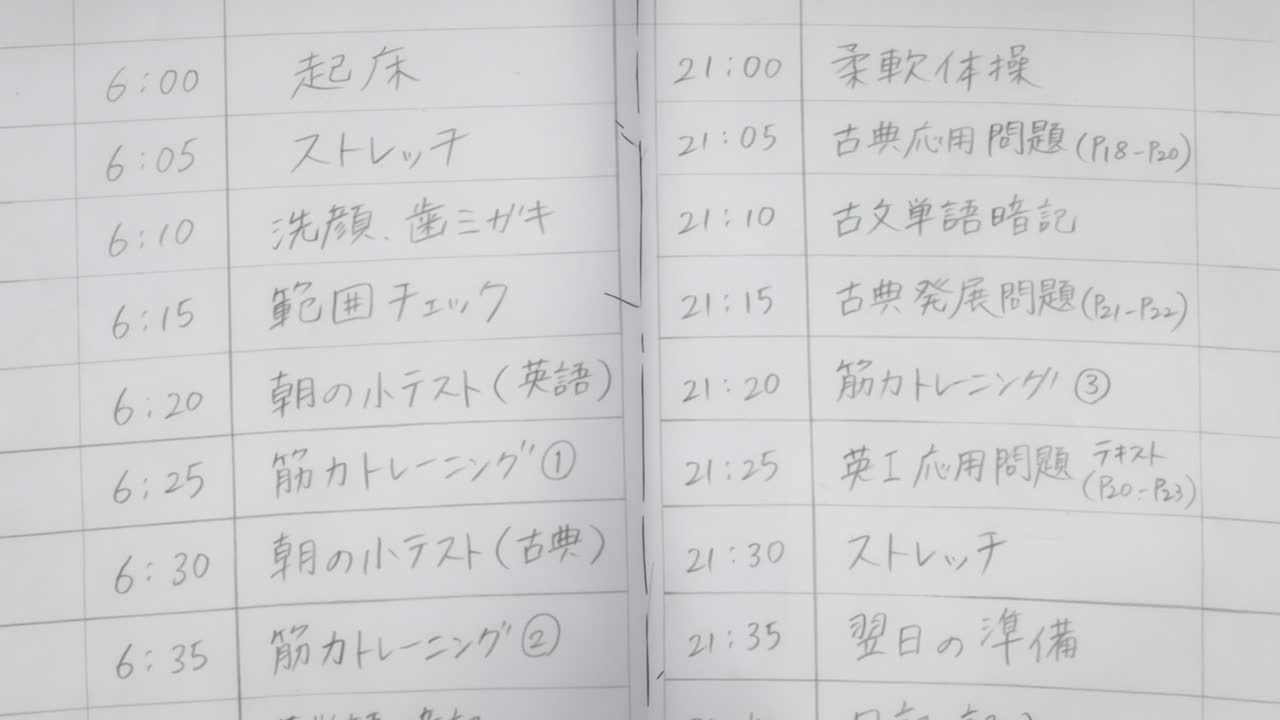 6:00 起床
6:05 ストレッチ
6:10 洗顔、歯ミガキ
6:15 範囲チェック
6:20 朝の小テスト(英語)
6:25 筋力トレーニング①
6:30 朝の小テスト(古典)
6:35 筋力トレーニング②
21:00 柔軟体操
21:05 古典応用問題(P18-P20)
21:10 古文単語暗記
21:15 古典発展問題(P21-P22)
21:20 筋力トレーニング③
21:25 英I応用問題 テキスト(P20-P23)
21:30 ストレッチ
21:35 翌日の準備